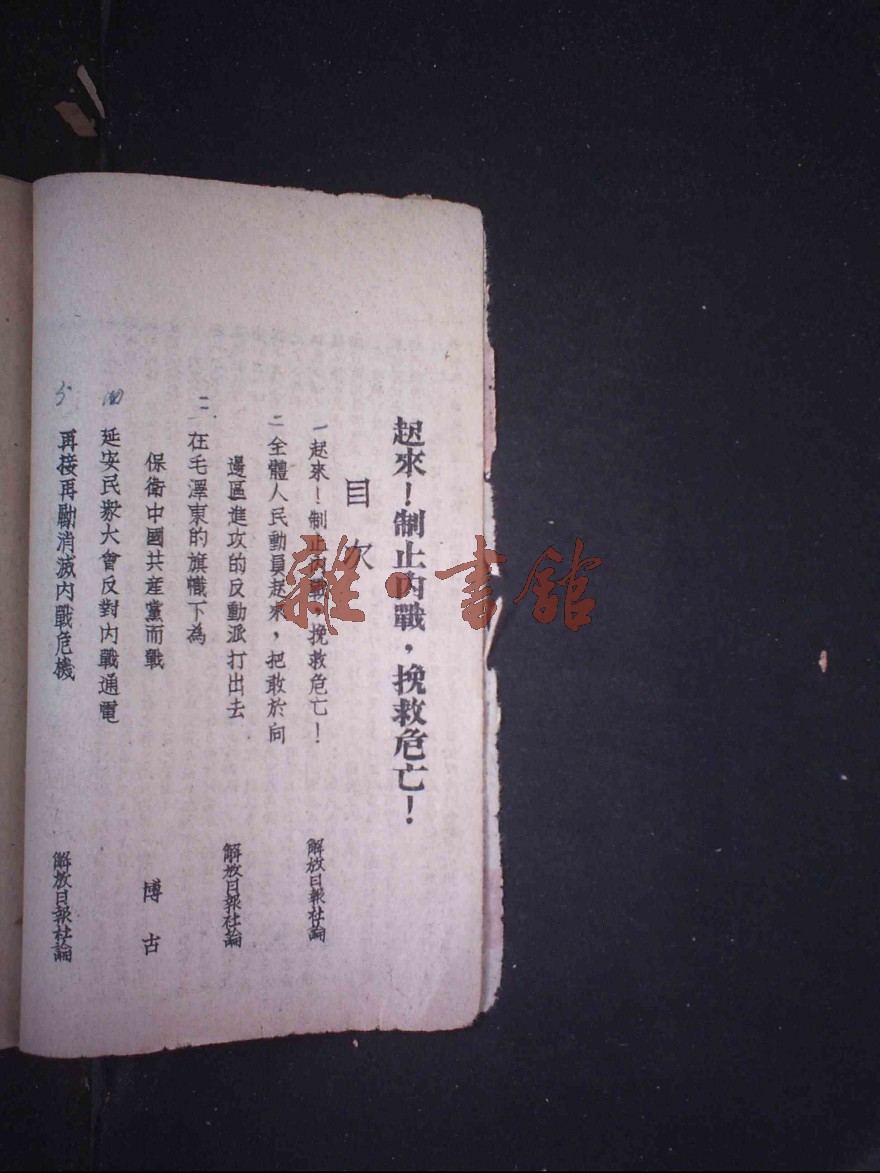 起來！制止內戰，挽救危亡！
目次
一起來！制止內戰，挽救危亡！
解放日報社論
二全體人民動員起來，把敢於向
邊區進攻的反動派打出去
解放日報社論
三在毛澤東的旗幟下為
保衛中國共產黨而戰
博古
四延安民眾大會反對內戰通電
再接再勵消滅內戰危機
解放日報社論
雜·書館